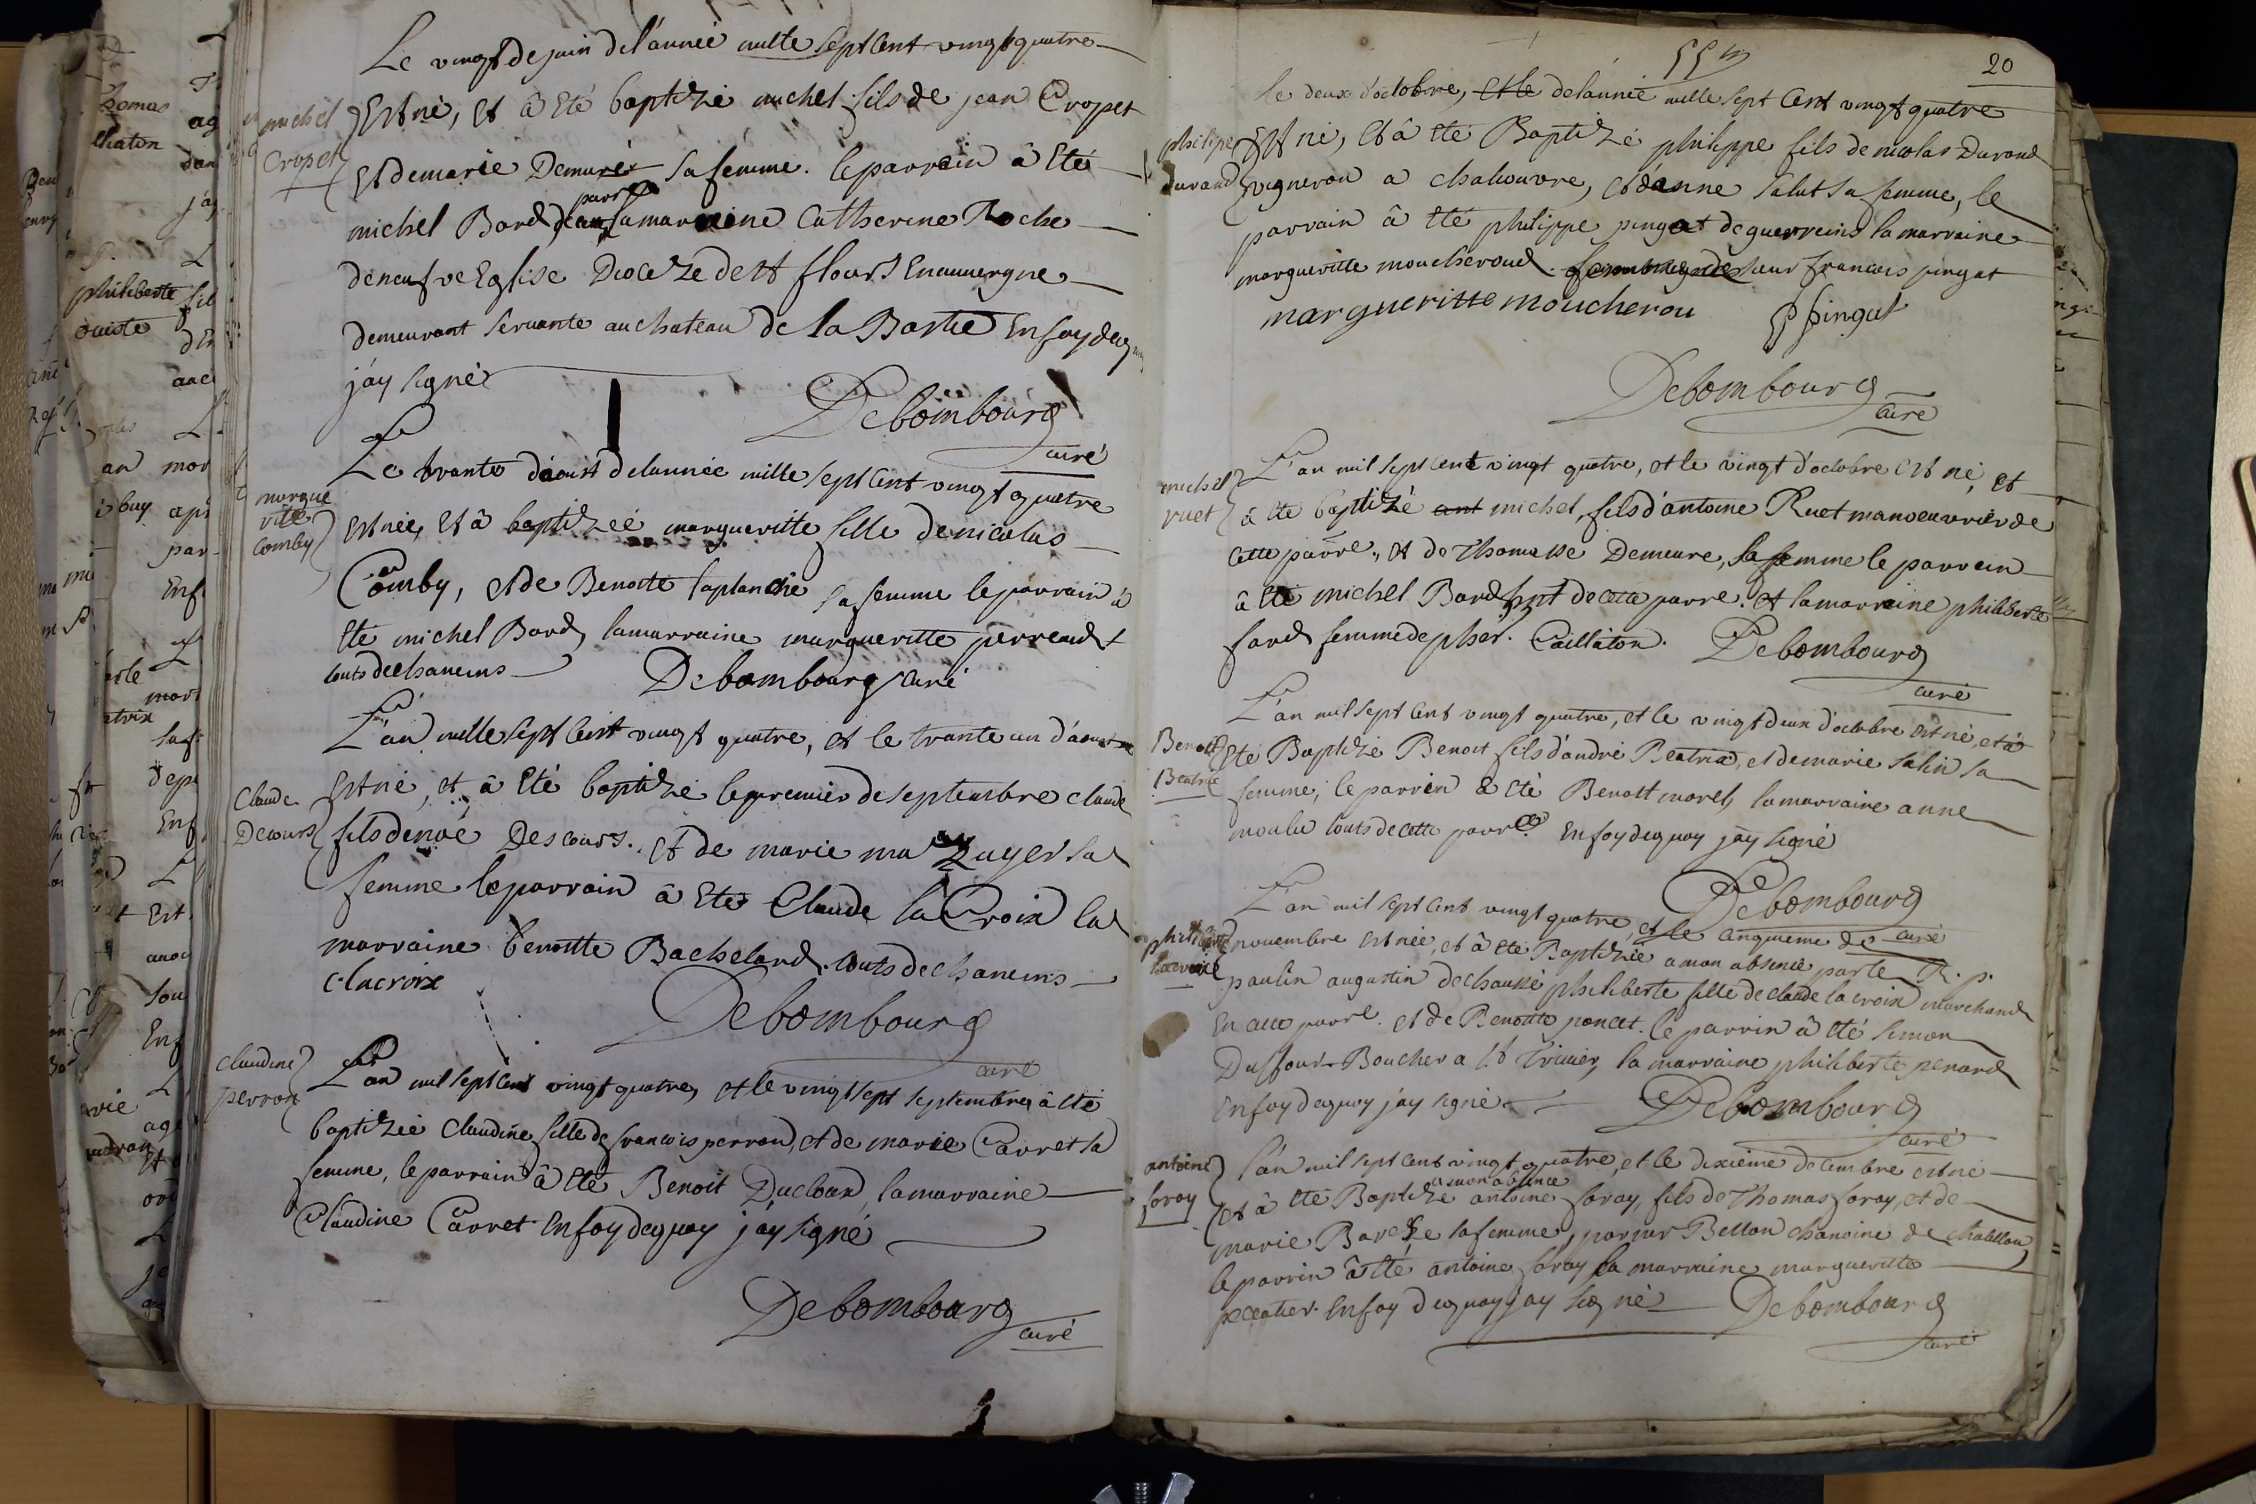 Le vingt de juin de l'année mille sept cent vingt quatre
michel
Cropet
Est né, et â Eté baptizé michel fils de jean Cropet
Et de marie Demurér sa femme. le parrain â Eté
michel Bard la marraine Catherine Roche
de neufve Eglise Diocéze de st flour En auuergne
demeurant seruante au chateau de la Bastie En foy dequoy
j'ay signé
Debombourg
curé
Le trante d'aoust de lannée mille sept cent vingt quatre
margue
ritte
Comby
Est née, et â baptizeé margueritte fille de nicolas
Comby, et de Benoite laplanche sa femme le parrain â
Eté michel Bard, la marraine margueritte perreaud
touts de chaneins
Debombourg curé
L'an mille sept Cent vingt quatre, et le trante un d'aoust
Claude
Decours
Est né, et â Eté baptizé le premier de septembre claude
fils de noé Descours. et de marie ma Zuyer sa
femme le parrain â Eté Claude la Croix la
marraine benoitte Bachelard. touts de chaneins
C. lacroix
Debombourg
curé
claudine
perron
L'an mil sept cent vingt quatre, et le vingt sept septembre, â Eté
baptizéé Claudine fille de francois perron, et de marie Carret sa
femme, le parrain â Eté Benoit Ducloux, la marraine
Claudine Carret En foy dequoy j'ay signé
Debombourg
curé
20
le deux d'octobre, et le de l'année mille sept Cent vingt quatre
philipe
durand
Est né, et â Eté Baptizé philippe fils de nicolas Durand
vigneron a chaliouvre, et d'anne salut sa femme, le
parrain â Eté philippe pingat de guerreins la marraine
margueritte moucheroud sieur francois pingat
margueritte moucherou
P Pingat
Debombourg
curé
michel
ruet
L'an mil sept cent vingt quatre, et le vingt d'octobre Est né, et
â Eté baptizé ant michel, fils d'antoine Ruet manoeuvrier de
cette parre., et de Thomasse Demeure, sa femme le parrein
â Eté michel Bard de cette parre. et la marraine philiberte
fard femme de pher. Caillaton.
Debombourg
curé
L'an mil sept Cent vingt quatre, et le vingt deux d'octobre Est né, et â
Benoit
Beatrix
Eté Baptizé Benoit fils d'andré Beatrix, et de marie salin sa
femme, le parrein â Eté Benoit morel, la marraine anne
moulin touts de cette parre. En foy dequoy j'ay signé
Debombourg
curé
L'an mil sept Cent vingt quatre, et le cinquieme de
philiberte
lacroix
novembre Est née, et â Eté Baptizéé a mon absence par le R. p.
paulin augustin dechaussé philiberte fille de claude la croix marchand
En cette parre. et de Benoitte poncet. le parrin â Eté simon
Duffour Boucher a st Trivier, la marraine philiberte penard
En foy dequoy j'ay signé
Debombourg
curé
antoine
foray
l'an mil sept cent vingt quatre, et le dixiéme decembre est né
a mon absence
et â Eté Baptizé antoine foray, fils de Thomas foray, et de
marie sa femme, par mr Bellon chanoine de chatillon
le parrin â Eté antoine foray la marraine margueritte
En foy dequoy j'ay signé
Debombourg
curé